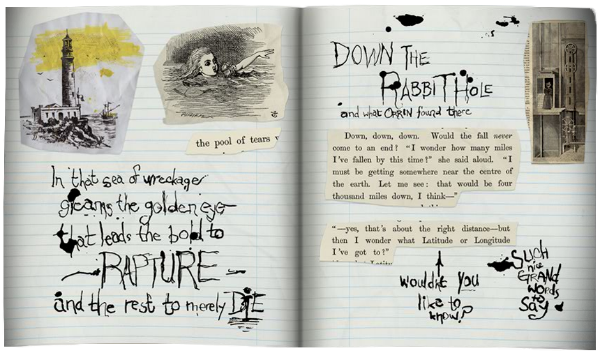 the pool of tears
In that sea of wreckage
gleams the golden eye
that leads the bold to
RAPTURE
and the rest to merely DIE
DOWN THE
RABBIT HOLE
and what ORRIN found there
Down, down, down. Would the fall never
come to an end? "I wonder how many miles
I've fallen by this time?" she said aloud. "I
must be getting somewhere near the centre of
the earth. Let me see: that would be four
thousand miles down, I think—"
"—yes, that's about the right distance—but
then I wonder what Latitude or Longitude
I've got to?"
wouldnt YOU
like to
know?
SUCH
nice
GRAND
words
to
SAY